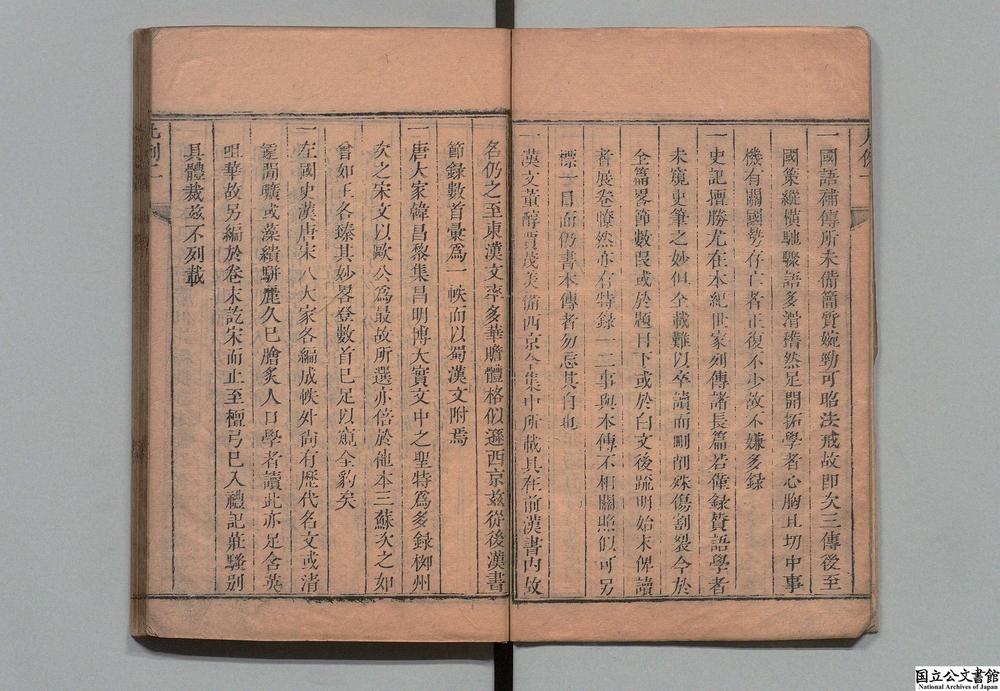 一國語補傳所未備簡質婉勁可昭法戒故即次三傳後至
國策縱橫馳驟語多滑稽然足開拓學者心胸且切中事
機有關國勢存亡者正復不少故不嫌多録
一史記擅勝尤在本紀世家列傳諸長篇若僅録贊語學者
未窺史筆之妙但全載難以卒讀而刪削殊傷割裂今於
全篇畧節數段或於題目下或於白文後疏明始末俾讀
者展卷瞭然亦有特録一二事與本傳不相關照似可另
標一目而仍書本傳者勿忘其自也
一漢文董醇賈茂美備西京全集中所載具在前漢書内故
名仍之至東漢文率多華贍體格似遜西京兹從後漢書
節録數首彙爲一帙而以蜀漢文附焉
一唐大家韓昌黎集昌明博大實文中之聖特爲多録柳州
次之宋文以歐公爲最故所選亦倍於他本三蘇次之如
曾如王各臻其妙畧登數首已足以窺全豹矣
一左國史漢唐宋八大家各編成帙外尚有歷代名文或清
醒閒曠或藻繢駢麗久已膾炙人口學者讀此亦足含英
咀華故另編於卷末訖宋而止至檀弓已入禮記莊騷别
具體裁兹不列載
凡例二
国立公文書館
National Archives of Japan